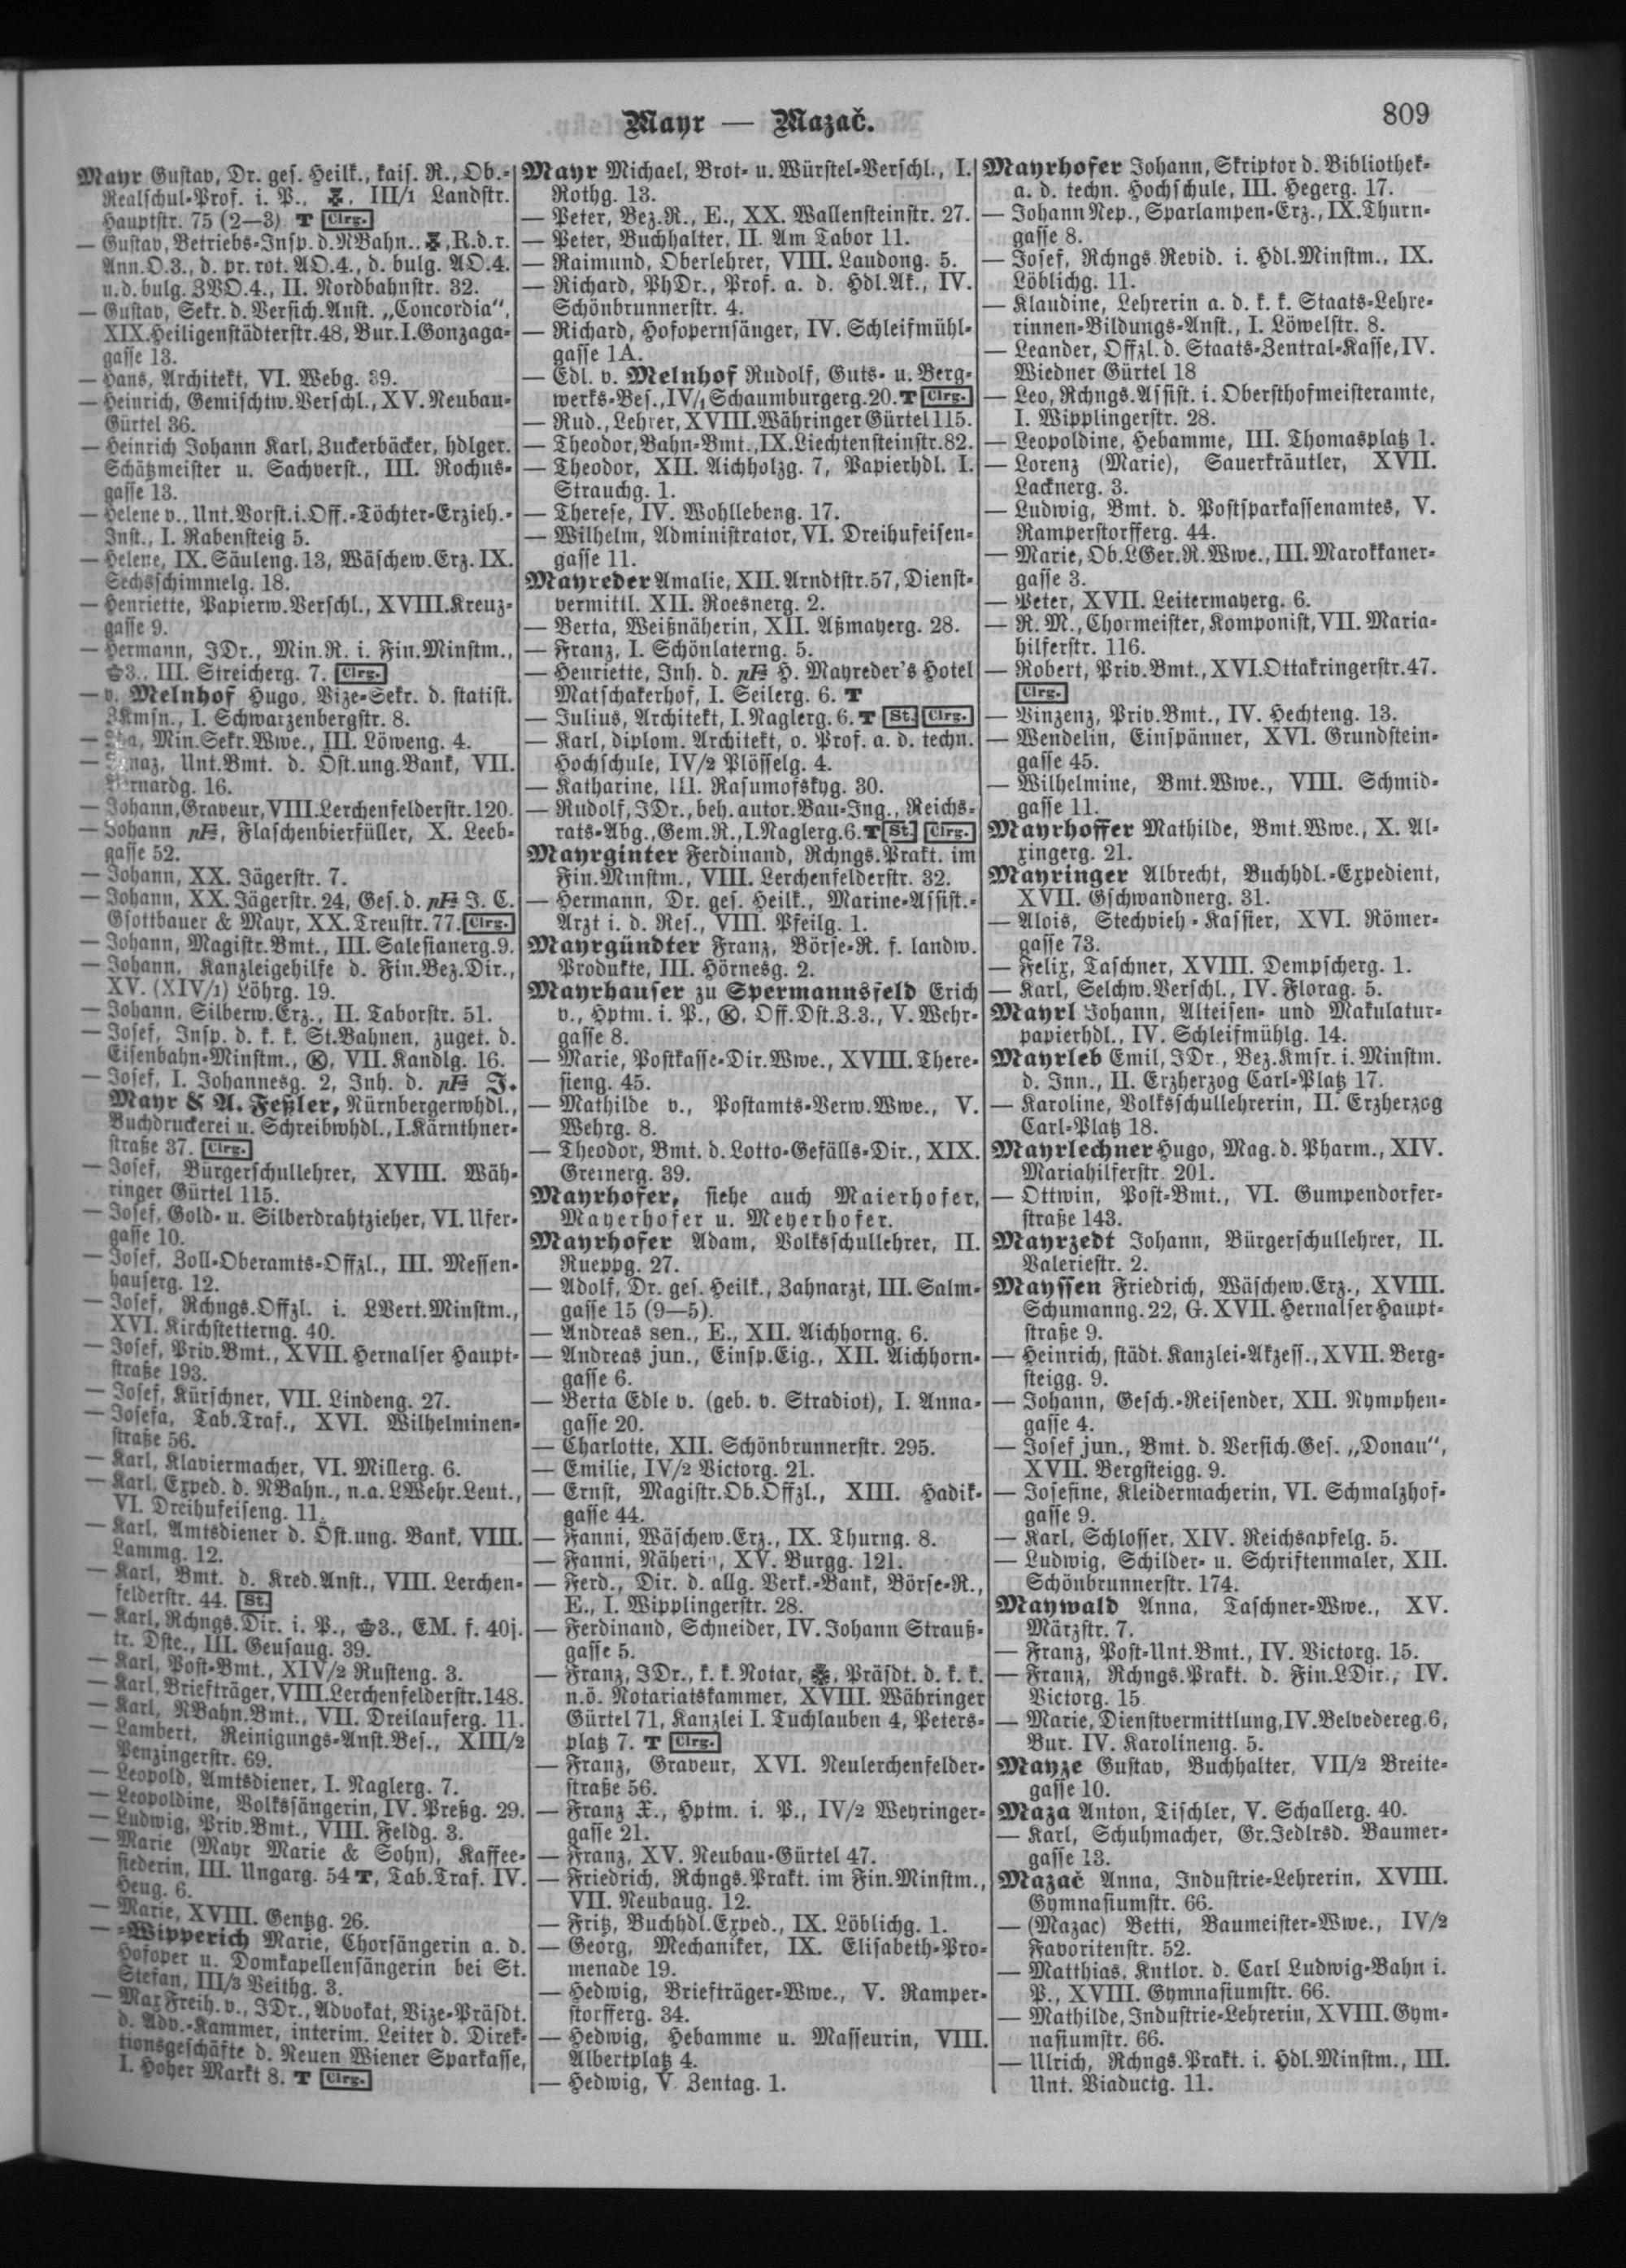 Mayr — Mazač.
809
Mayr Gustav, Dr. ges. Heilk., kais. R., Ob.-
Realschul-Prof. i. P., III/1 Landstr.
Hauptstr. 75 (2—3) T Clrg.
— Gustav, Betriebs-Insp. d. NBahn., R. d. r.
Ann. O. 3., d. pr. rot. AO. 4., d. bulg. AO. 4.
u. d. bulg. ZVO. 4., II. Nordbahnstr. 32.
— Gustav, Sekr. d. Versich. Anst. „Concordia“,
XIX. Heiligenstädterstr. 48, Bur. I. Gonzaga-
gasse 13.
— Hans, Architekt, VI. Webg. 39.
— Heinrich, Gemischtw. Verschl., XV. Neubau-
Gürtel 36.
— Heinrich Johann Karl, Zuckerbäcker, hdlger.
Schätzmeister u. Sachverst., III. Rochus-
gasse 13.
— Helene v., Unt. Vorst. i. Off.-Töchter-Erzieh.-
Inst., I. Rabensteig 5.
— Helene, IX. Säuleng. 13, Wäschew. Erz. IX.
Sechsschimmelg. 18.
— Henriette, Papierw. Verschl., XVIII. Kreuz-
gasse 9.
— Hermann, JDr., Min. R. i. Fin. Minstm.,
3., III. Streicherg. 7. Clrg.
— v. Melnhof Hugo, Vize-Sekr. d. statist.
ZKmsn., I. Schwarzenbergstr. 8.
— Min. Sekr. Wwe., III. Löweng. 4.
— Unt. Bmt. d. Öst. ung. Bank, VII.
Bernardg. 16.
— Johann, Graveur, VIII. Lerchenfelderstr. 120.
— Johann pF, Flaschenbierfüller, X. Leeb-
gasse 52.
— Johann, XX. Jägerstr. 7.
— Johann, XX. Jägerstr. 24, Ges. d. pF J. C.
Gsottbauer & Mayr, XX. Treustr. 77. Clrg.
— Johann, Magistr. Bmt., III. Salesianerg. 9.
— Johann, Kanzleigehilfe d. Fin. Bez. Dir.,
XV. (XIV/1) Löhrg. 19.
— Johann, Silberw. Erz., II. Taborstr. 51.
— Josef, Insp. d. k. k. St. Bahnen, zuget. d.
Eisenbahn-Minstm., Ⓚ, VII. Kandlg. 16.
— Josef, I. Johannesg. 2, Inh. d. pF J.
Mayr & A. Feßler, Nürnbergerwhdl.,
Buchdruckerei u. Schreibwhdl., I. Kärnthner-
straße 37. Clrg.
— Josef, Bürgerschullehrer, XVIII. Wäh-
ringer Gürtel 115.
— Josef, Gold- u. Silberdrahtzieher, VI. Ufer-
gasse 10.
— Josef, Zoll-Oberamts-Offzl., III. Messen-
hauserg. 12.
— Josef, Rchngs. Offzl. i. LVert. Minstm.,
XVI. Kirchstetterng. 40.
— Josef, Priv. Bmt., XVII. Hernalser Haupt-
straße 193.
— Josef, Kürschner, VII. Lindeng. 27.
— Josefa, Tab. Traf., XVI. Wilhelminen-
straße 56.
— Karl, Klaviermacher, VI. Millerg. 6.
— Karl, Exped. d. NBahn., n. a. LWehr. Leut.,
VI. Dreihufeiseng. 11.
— Karl, Amtsdiener d. Öst. ung. Bank, VIII.
Lammg. 12.
— Karl, Bmt. d. Kred. Anst., VIII. Lerchen-
felderstr. 44. St.
— Karl, Rchngs. Dir. i. P., 3., EM. f. 40j.
tr. Dste., III. Geusaug. 39.
— Karl, Post-Bmt., XIV/2 Rusteng. 3.
— Karl, Briefträger, VIII. Lerchenfelderstr. 148.
— Karl, NBahn. Bmt., VII. Dreilauferg. 11.
— Lambert, Reinigungs-Anst. Bes., XIII/2
Penzingerstr. 69.
— Leopold, Amtsdiener, I. Naglerg. 7.
— Leopoldine, Volkssängerin, IV. Preßg. 29.
— Ludwig, Priv. Bmt., VIII. Feldg. 3.
— Marie (Mayr Marie & Sohn), Kaffee-
siederin, III. Ungarg. 54 T, Tab. Traf. IV.
Heug. 6.
— Marie, XVIII. Gentzg. 26.
— -Wipperich Marie, Chorsängerin a. d.
Hofoper u. Domkapellensängerin bei St.
Stefan, III/3 Veithg. 3.
— Max Freih. v., JDr., Advokat, Vize-Präsdt.
d. Adv.-Kammer, interim. Leiter d. Direk-
tionsgeschäfte d. Neuen Wiener Sparkasse,
I. Hoher Markt 8. T Clrg.
Mayr Michael, Brot- u. Würstel-Verschl., I.
Rothg. 13.
— Peter, Bez. R., E., XX. Wallensteinstr. 27.
— Peter, Buchhalter, II. Am Tabor 11.
— Raimund, Oberlehrer, VIII. Laudong. 5.
— Richard, PhDr., Prof. a. d. Hdl. Ak., IV.
Schönbrunnerstr. 4.
— Richard, Hofopernsänger, IV. Schleifmühl-
gasse 1A.
— Edl. v. Melnhof Rudolf, Guts- u. Berg-
werks-Bes., IV/1 Schaumburgerg. 20. T Clrg.
— Rud., Lehrer, XVIII. Währinger Gürtel 115.
— Theodor, Bahn-Bmt., IX. Liechtensteinstr. 82.
— Theodor, XII. Aichholzg. 7, Papierhdl. I.
Strauchg. 1.
— Therese, IV. Wohllebeng. 17.
— Wilhelm, Administrator, VI. Dreihufeisen-
gasse 11.
Mayreder Amalie, XII. Arndtstr. 57, Dienst-
vermittl. XII. Roesnerg. 2.
— Berta, Weißnäherin, XII. Aßmayerg. 28.
— Franz, I. Schönlaterng. 5.
— Henriette, Inh. d. pF H. Mayreder's Hotel
Matschakerhof, I. Seilerg. 6. T
— Julius, Architekt, I. Naglerg. 6. T St. Clrg.
— Karl, diplom. Architekt, o. Prof. a. d. techn.
Hochschule, IV/2 Plösselg. 4.
— Katharine, III. Rasumofskyg. 30.
— Rudolf, JDr., beh. autor. Bau-Ing., Reichs-
rats-Abg., Gem. R., I. Naglerg. 6. T St. Clrg.
Mayrginter Ferdinand, Rchngs. Prakt. im
Fin. Minstm., VIII. Lerchenfelderstr. 32.
— Hermann, Dr. ges. Heilk., Marine-Assist.-
Arzt i. d. Res., VIII. Pfeilg. 1.
Mayrgündter Franz, Börse-R. f. landw.
Produkte, III. Hörnesg. 2.
Mayrhauser zu Spermannsfeld Erich
v., Hptm. i. P., Ⓚ, Off. Dst. Z. 3., V. Wehr-
gasse 8.
— Marie, Postkasse-Dir. Wwe., XVIII. There-
sieng. 45.
— Mathilde v., Postamts-Verw. Wwe., V.
Wehrg. 8.
— Theodor, Bmt. d. Lotto-Gefälls-Dir., XIX.
Greinerg. 39.
Mayrhofer, siehe auch Maierhofer,
Mayerhofer u. Meyerhofer.
Mayrhofer Adam, Volksschullehrer, II.
Rueppg. 27.
— Adolf, Dr. ges. Heilk., Zahnarzt, III. Salm-
gasse 15 (9—5).
— Andreas sen., E., XII. Aichhorng. 6.
— Andreas jun., Einsp. Eig., XII. Aichhorn-
gasse 6.
— Berta Edle v. (geb. v. Stradiot), I. Anna-
gasse 20.
— Charlotte, XII. Schönbrunnerstr. 295.
— Emilie, IV/2 Victorg. 21.
— Ernst, Magistr. Ob. Offzl., XIII. Hadik-
gasse 44.
— Fanni, Wäschew. Erz., IX. Thurng. 8.
— Fanni, Näherin, XV. Burgg. 121.
— Ferd., Dir. d. allg. Verk.-Bank, Börse-R.,
E., I. Wipplingerstr. 28.
— Ferdinand, Schneider, IV. Johann Strauß-
gasse 5.
— Franz, JDr., k. k. Notar, Präsdt. d. k. k.
n.ö. Notariatskammer, XVIII. Währinger
Gürtel 71, Kanzlei I. Tuchlauben 4, Peters-
platz 7. T Clrg.
— Franz, Graveur, XVI. Neulerchenfelder-
straße 56.
— Franz X., Hptm. i. P., IV/2 Weyringer-
gasse 21.
— Franz, XV. Neubau-Gürtel 47.
— Friedrich, Rchngs. Prakt. im Fin. Minstm.,
VII. Neubaug. 12.
— Fritz, Buchhdl. Exped., IX. Löblichg. 1.
— Georg, Mechaniker, IX. Elisabeth-Pro-
menade 19.
— Hedwig, Briefträger-Wwe., V. Ramper-
storfferg. 34.
— Hedwig, Hebamme u. Masseurin, VIII.
Albertplatz 4.
— Hedwig, V. Zentag. 1.
Mayrhofer Johann, Skriptor d. Bibliothek-
a. d. techn. Hochschule, III. Hegerg. 17.
— Johann Nep., Sparlampen-Erz., IX. Thurn-
gasse 8.
— Josef, Rchngs. Revid. i. Hdl. Minstm., IX.
Löblichg. 11.
— Klaudine, Lehrerin a. d. k. k. Staats-Lehre-
rinnen-Bildungs-Anst., I. Löwelstr. 8.
— Leander, Offzl. d. Staats-Zentral-Kasse, IV.
Wiedner Gürtel 18
— Leo, Rchngs. Assist. i. Obersthofmeisteramte,
I. Wipplingerstr. 28.
— Leopoldine, Hebamme, III. Thomasplatz 1.
— Lorenz (Marie), Sauerkräutler, XVII.
Lacknerg. 3.
— Ludwig, Bmt. d. Postsparkassenamtes, V.
Ramperstorfferg. 44.
— Marie, Ob. LGer. R. Wwe., III. Marokkaner-
gasse 3.
— Peter, XVII. Leitermayerg. 6.
— R. M., Chormeister, Komponist, VII. Maria-
hilferstr. 116.
— Robert, Priv. Bmt., XVI. Ottakringerstr. 47.
Clrg.
— Vinzenz, Priv. Bmt., IV. Hechteng. 13.
— Wendelin, Einspänner, XVI. Grundstein-
gasse 45.
— Wilhelmine, Bmt. Wwe., VIII. Schmid-
gasse 11.
Mayrhoffer Mathilde, Bmt. Wwe., X. Al-
xingerg. 21.
Mayringer Albrecht, Buchhdl.-Expedient,
XVII. Gschwandnerg. 31.
— Alois, Stechvieh-Kassier, XVI. Römer-
gasse 73.
— Felix, Taschner, XVIII. Dempscherg. 1.
— Karl, Selchw. Verschl., IV. Florag. 5.
Mayrl Johann, Alteisen- und Makulatur-
papierhdl., IV. Schleifmühlg. 14.
Mayrleb Emil, JDr., Bez. Kmsr. i. Minstm.
d. Inn., II. Erzherzog Carl-Platz 17.
— Karoline, Volksschullehrerin, II. Erzherzog
Carl-Platz 18.
Mayrlechner Hugo, Mag. d. Pharm., XIV.
Mariahilferstr. 201.
— Ottwin, Post-Bmt., VI. Gumpendorfer-
straße 143.
Mayrzedt Johann, Bürgerschullehrer, II.
Valeriestr. 2.
Mayssen Friedrich, Wäschew. Erz., XVIII.
Schumanng. 22, G. XVII. Hernalser Haupt-
straße 9.
— Heinrich, städt. Kanzlei-Akzess., XVII. Berg-
steigg. 9.
— Johann, Gesch.-Reisender, XII. Nymphen-
gasse 4.
— Josef jun., Bmt. d. Versich. Ges. „Donau“,
XVII. Bergsteigg. 9.
— Josefine, Kleidermacherin, VI. Schmalzhof-
gasse 9.
— Karl, Schlosser, XIV. Reichsapfelg. 5.
— Ludwig, Schilder- u. Schriftenmaler, XII.
Schönbrunnerstr. 174.
Maywald Anna, Taschner-Wwe., XV.
Märzstr. 7.
— Franz, Post-Unt. Bmt., IV. Victorg. 15.
— Franz, Rchngs. Prakt. d. Fin. LDir., IV.
Victorg. 15.
— Marie, Dienstvermittlung, IV. Belvedereg. 6,
Bur. IV. Karolineng. 5.
Mayze Gustav, Buchhalter, VII/2 Breite-
gasse 10.
Maza Anton, Tischler, V. Schallerg. 40.
— Karl, Schuhmacher, Gr. Jedlrsd. Baumer-
gasse 13.
Mazač Anna, Industrie-Lehrerin, XVIII.
Gymnasiumstr. 66.
— (Mazac) Betti, Baumeister-Wwe., IV/2
Favoritenstr. 52.
— Matthias, Kntlor. d. Carl Ludwig-Bahn i.
P., XVIII. Gymnasiumstr. 66.
— Mathilde, Industrie-Lehrerin, XVIII. Gym-
nasiumstr. 66.
— Ulrich, Rchngs. Prakt. i. Hdl. Minstm., III.
Unt. Viaductg. 11.